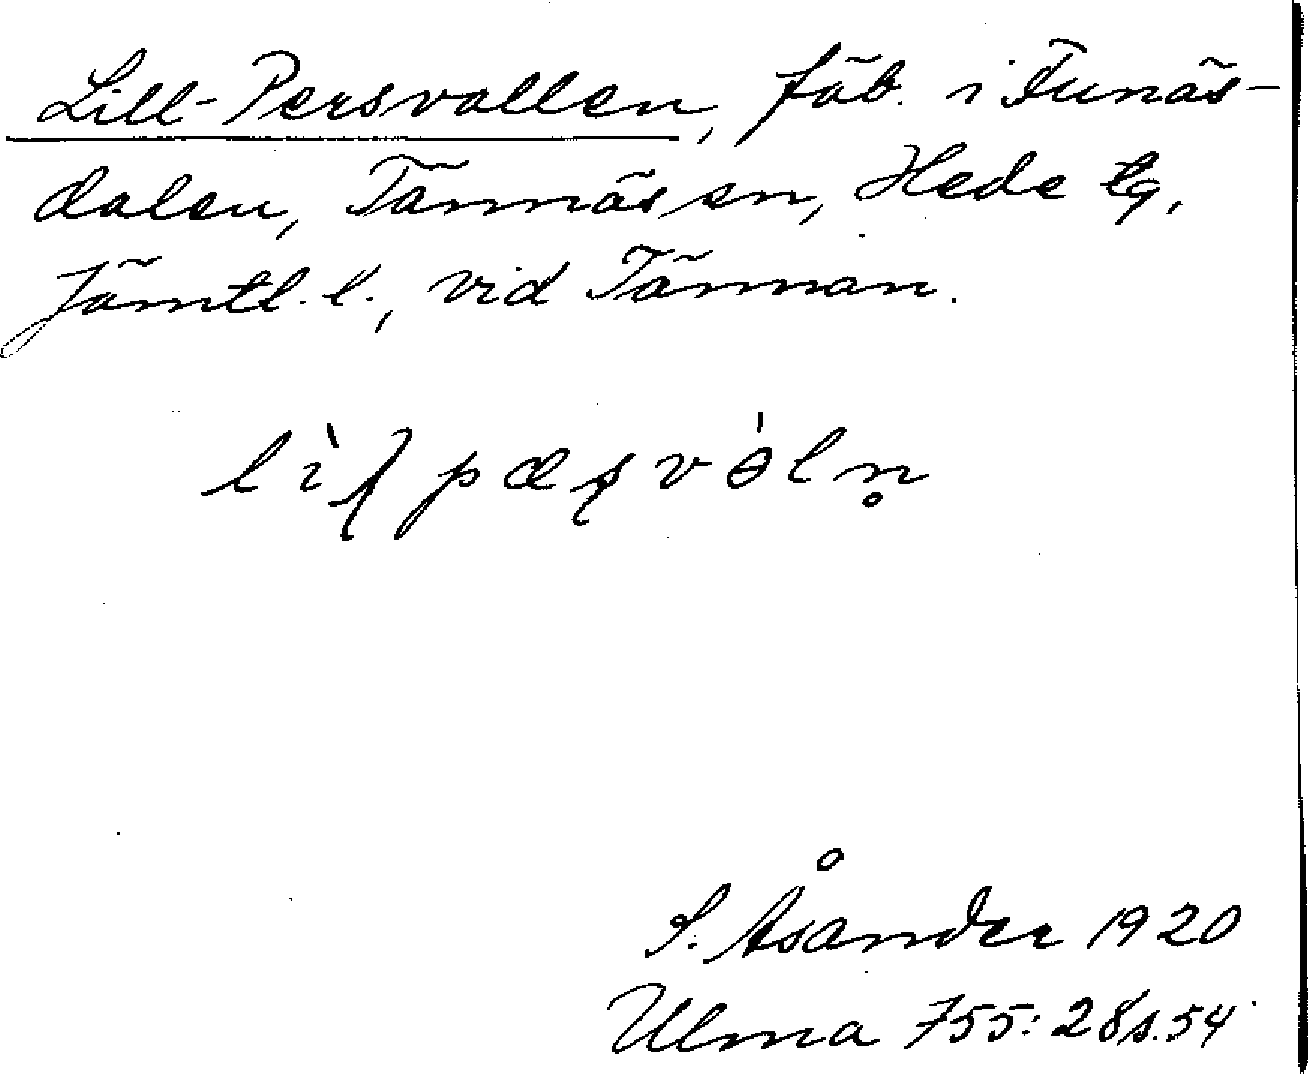 Lill-Persvallen, fäb. i Funäs-
dalen, Tännäs sn, Hede tg,
Jämtl. l., vid Tännan.
S. Åsander 1920
Ulma 755: 28 s. 54